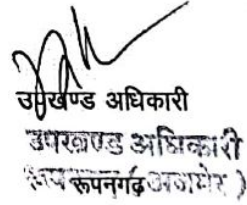 उपखण्ड अधिकारी
उपखण्ड अधिकारी
रूपनगढ़ अजमेर )